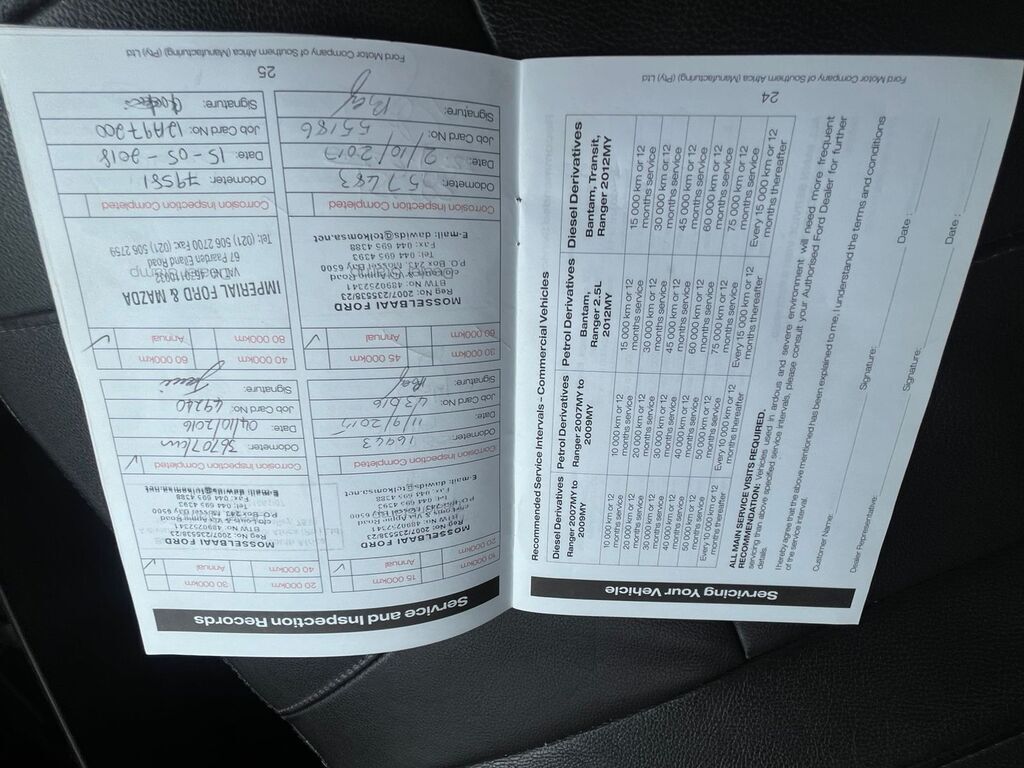 Servicing Your Vehicle
Recommended Service Intervals – Commercial Vehicles
Diesel Derivatives Ranger 2007MY to 2009MY
Petrol Derivatives Ranger 2007MY to 2009MY
Petrol Derivatives Bantam, Ranger 2.5L 2012MY
Diesel Derivatives Bantam, Transit, Ranger 2012MY
10 000 km or 12 months service
10 000 km or 12 months service
15 000 km or 12 months service
15 000 km or 12 months service
20 000 km or 12 months service
20 000 km or 12 months service
30 000 km or 12 months service
30 000 km or 12 months service
30 000 km or 12 months service
30 000 km or 12 months service
45 000 km or 12 months service
45 000 km or 12 months service
40 000 km or 12 months service
40 000 km or 12 months service
60 000 km or 12 months service
60 000 km or 12 months service
50 000 km or 12 months service
50 000 km or 12 months service
75 000 km or 12 months service
75 000 km or 12 months service
Every 10 000 km or 12 months thereafter
Every 10 000 km or 12 months thereafter
Every 15 000 km or 12 months thereafter
Every 15 000 km or 12 months thereafter
ALL MAIN SERVICE VISITS REQUIRED.
RECOMMENDATION: Vehicles used in ardous and severe environment will need more frequent
servicing than above specified service intervals, please consult your Authorised Ford Dealer for further
details.
I hereby agree that the above mentioned has been explained to me, I understand the terms and conditions
of the service interval.
Customer Name: Signature: Date:
Dealer Representative: Signature: Date:
24
Ford Motor Company of Southern Africa (Manufacturing) (Pty) Ltd
Service and Inspection Records
10 000km 15 000km
20 000km Annual
MOSSELBAAI FORD
Reg No: 2007/223538/23
BTW No: 4890252341
Tel: 044 695 4393
Fax: 044 695 4388
E-mail: dawids@telkomsa.net
Corrosion Inspection Completed
Odometer: 16443
Date:
Job Card No: 43016
Signature:
20 000km 30 000km
40 000km Annual
MOSSELBAAI FORD
Reg No: 2007/223538/23
BTW No: 4890252341
P.O. Box 243, Mossel Bay 6500
Tel: 044 695 4393
Fax: 044 695 4388
E-mail: dawids@telkomsa.net
Corrosion Inspection Completed
Odometer: 36707km
Date: 04/10/2016
Job Card No: 49240
Signature:
30 000km 45 000km
60 000km Annual
MOSSELBAAI FORD
Reg No: 2007/223538/23
BTW No: 4890252341
P.O. Box 243, Mossel Bay 6500
Tel: 044 695 4393
Fax: 044 695 4388
E-mail: dawids@telkomsa.net
Corrosion Inspection Completed
Odometer: 57483
Date: 2/10/2017
Job Card No: 55186
Signature:
40 000km 60 000km
80 000km Annual
IMPERIAL FORD & MAZDA
67 Paarden Eiland Road
Tel: (021) 506 2700 Fax: (021) 506 2759
Corrosion Inspection Completed
Odometer: 79581
Date: 15-05-2018
Job Card No: 12A97200
Signature:
25
Ford Motor Company of Southern Africa (Manufacturing) (Pty) Ltd